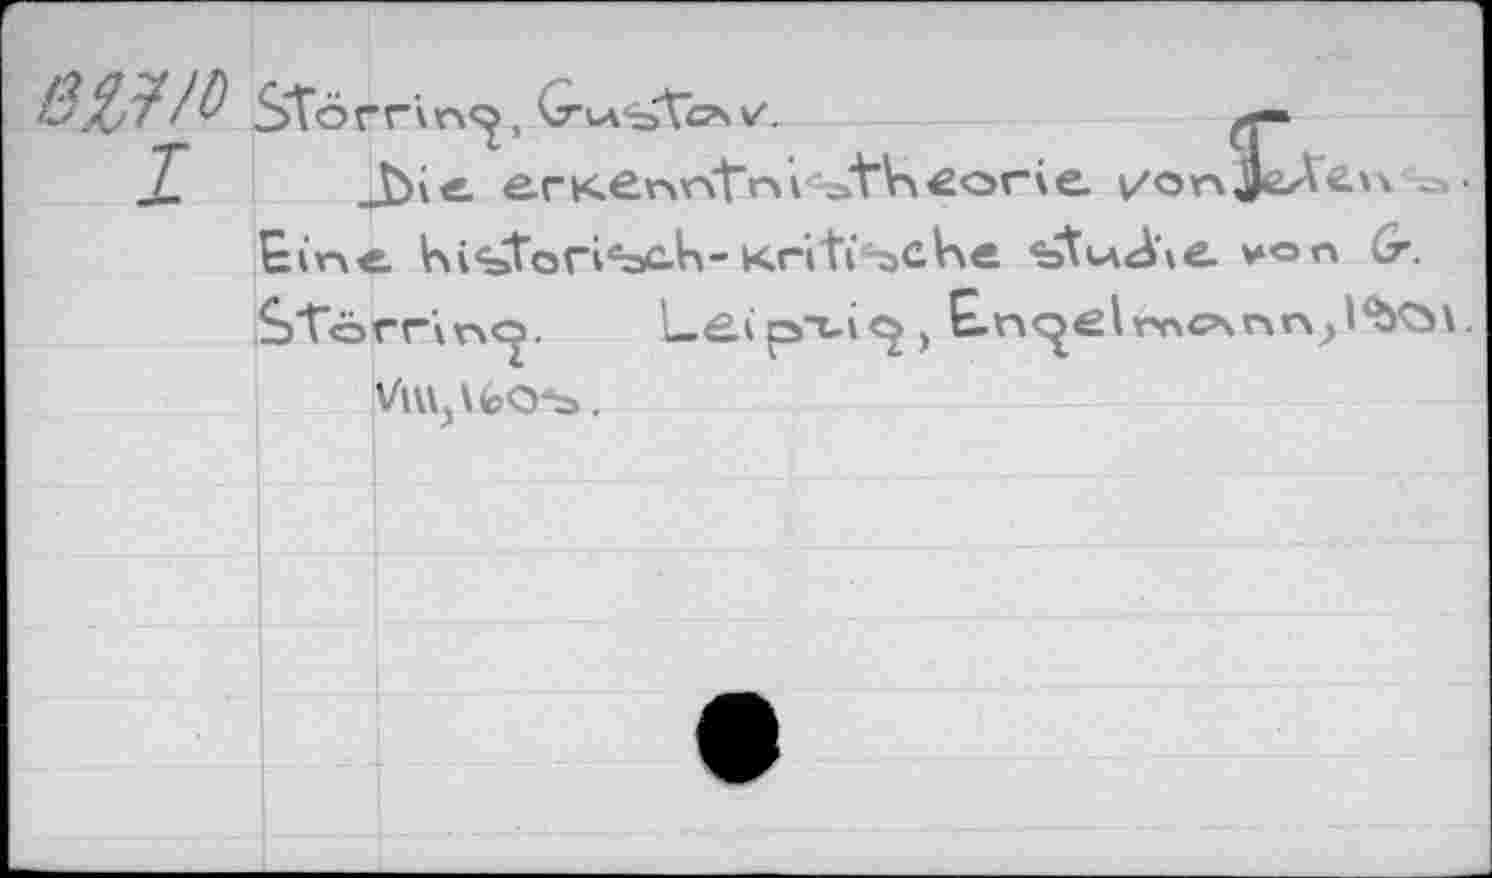 B2710 Störring, Gustav.
I Die erkenntnistheorie von Tetens.
Eine historisch-kritische studie von G.
Störring. Leipzig, Engelmann, 1901.
VIII,160s.